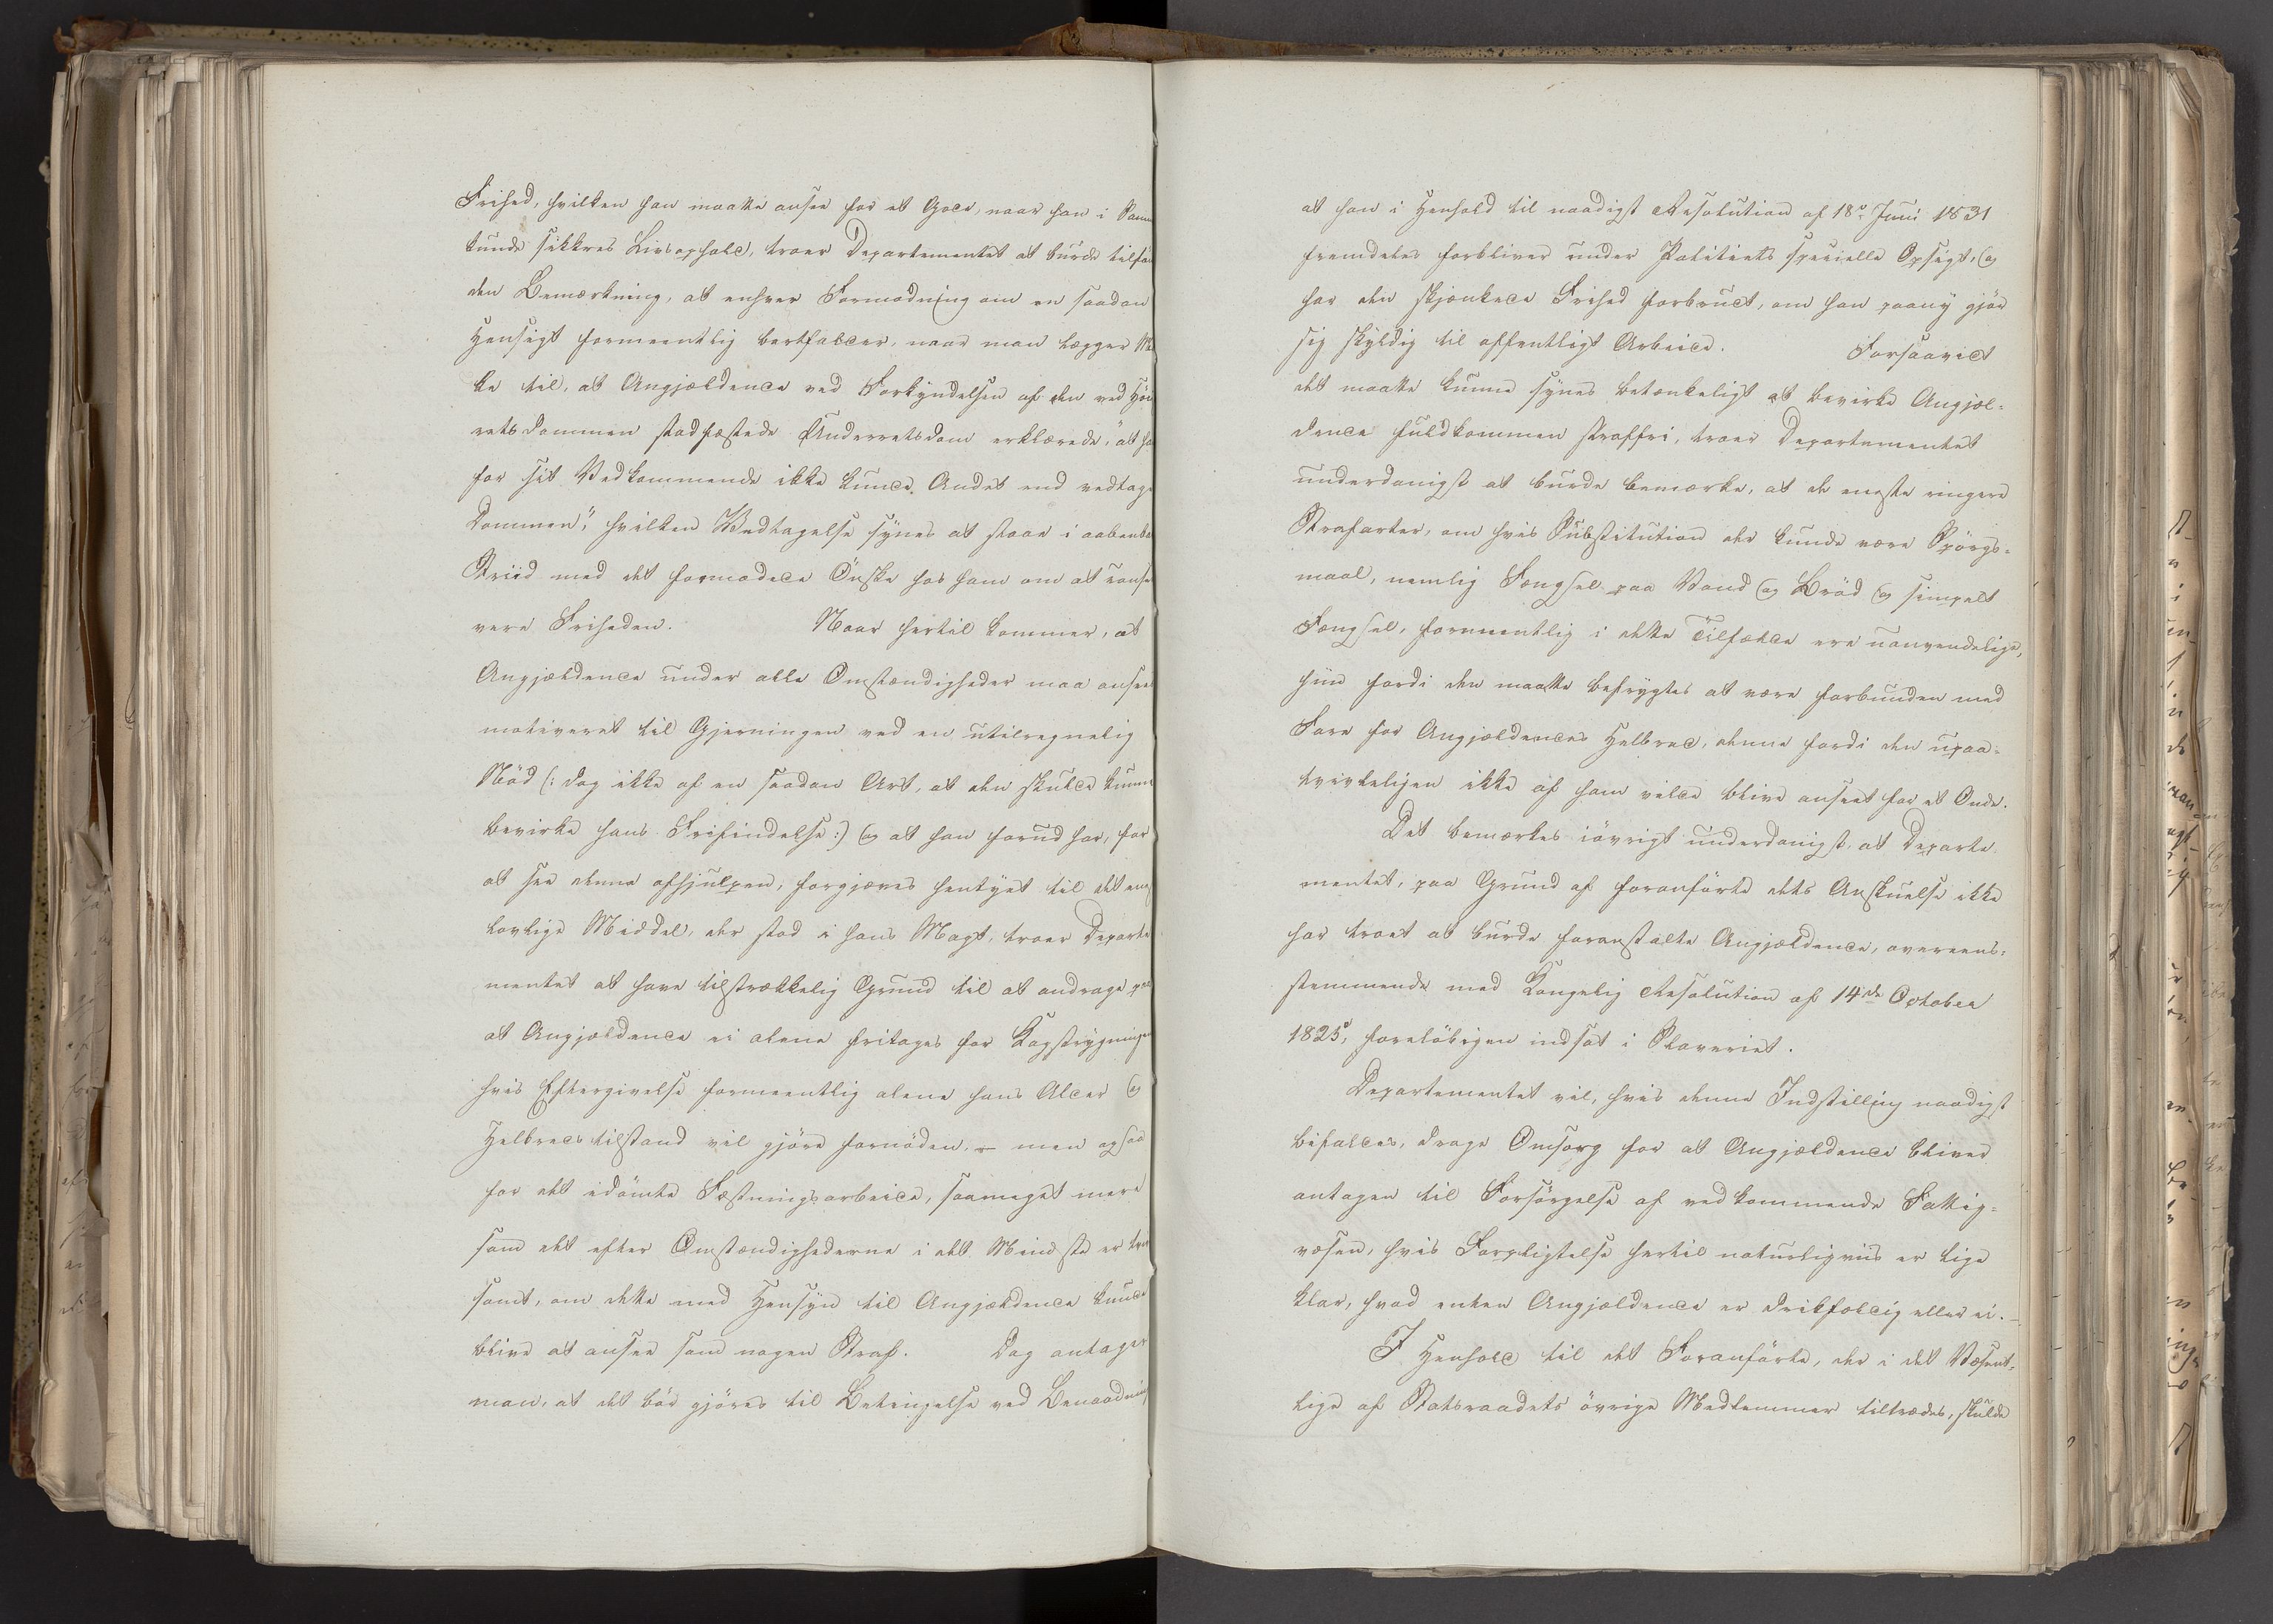 Frihed, hvilken han maatte ansee for et Gode, naar han i Samme
kunde sikkres Livsophold, troer Departementet at burde tilføie
den Bemærkning, at enhver Formodning om en saadan
Hensigt formeentlig bortfalder, naar man lægger Mær-
ke til, at Angjældende ved Forkyndelsen af den ved Høie-
retsdommen stadfæstede Underretsdom erklærede, "at han
for sit Vedkommende ikke kunde Andet end vedtage
Dommen", hvilken Vedtagelse synes at staae i aabenbar
Striid med det formodede Ønske hos ham om at conser-
vere Friheden. Naar hertil kommer, at
Angjældende under alle Omstændigheder maa ansees
motiveret til Gjerningen ved en utilregnelig
Nød (: dog ikke af en saadan Art, at den skulde kunne
bevirke hans Frifindelse :) og at han forud har, for
at see denne afhjulpen, forgjæves hentyet til det eneste
lovlige Middel, der stod i hans Magt, troer Departe-
mentet at have tilstrækkelig Grund til at andrage paa
at Angjældende ei alene fritages for Kagstrygningen
hvis Eftergivelse formeentlig alene hans Alder og
Helbredstilstand vil gjøre fornøden, – men ogsaa
for det idømte Fæstningsarbeide, saameget mere
som det efter Omstændighederne i det Mindste er tvivl-
somt, om dette med Hensyn til Angjældende kunde
blive at ansee som nogen Straf. Dog antager
man, at det bør gjøres til Betingelse ved Benaadning
at han i Henhold til naadigst Resolution af 18de Juni 1831
fremdeles forbliver under Politiets specielle Opsigt, og
har den skjænkede Frihed forbrudt, om han paany gjør
sig skyldig til offentligt Arbeide. Forsaavidt
det maatte kunne synes betænkeligt at bevirke Angjæl-
dende fuldkommen straffri, troer Departementet
underdanigst at burde bemærke, at de eneste ringere
Strafarter, om hvis Substitution der kunde være Spørgs-
maal, nemlig Fængsel paa Vand og Brød og simpelt
Fængsel, formeentlig i dette Tilfælde ere uanvendelige,
hiin fordi den maatte befrygtes at være forbunden med
Fare for Angjældendes Helbred, denne fordi den upaa-
tvivleligen ikke af ham vilde blive anseet for et Onde.
Det bemærkes iøvrigt underdanigst, at Departe-
mentet, paa Grund af foranførte dets Anskuelse ikke
har troet at burde foranstalte Angjældende, overeens-
stemmende med Kongelig Resolution af 14de October
1825, foreløbigen indsat i Slaveriet.
Departementet vil, hvis denne Indstilling naadigst
bifaldes, drage Omsorg for at Angjældende bliver
antagen til Forsørgelse af vedkommende Fattig-
væsen, hvis Forpligtelse hertil naturligviis er lige
klar, hvad enten Angjældende er drikfældig eller ei. –
I Henhold til det Foranførte, der i det Væsent-
lige af Statsraadets øvrige Medlemmer tiltrædes, skulde